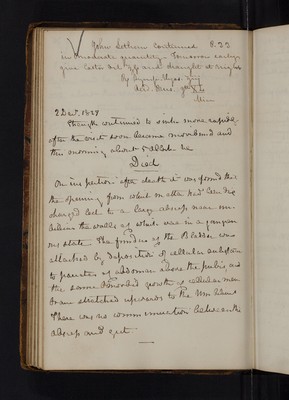 John Lethem Continued 8.22
in moderate quantity. Tomorrow early
give Castor Oil ℥ss and draught at night
2 Oct. 1829
Strength continued to sink more rapidly
after the visit soon became moribund and
this morning about o'clock he
Died
On inspection after death it was found that
the opening from which matter had been dis
charged led to a large abscess near um
bilicus the walls of which was in a gangren
ous state. The fundus of the Bladder was
attached by deposition of cellular substance
to parietes of abdomen above the pubis, and
the same disordered growth of cellular mem
brane stretched upwards to the Umbilicus
There was no communication between the
abscess and gut.